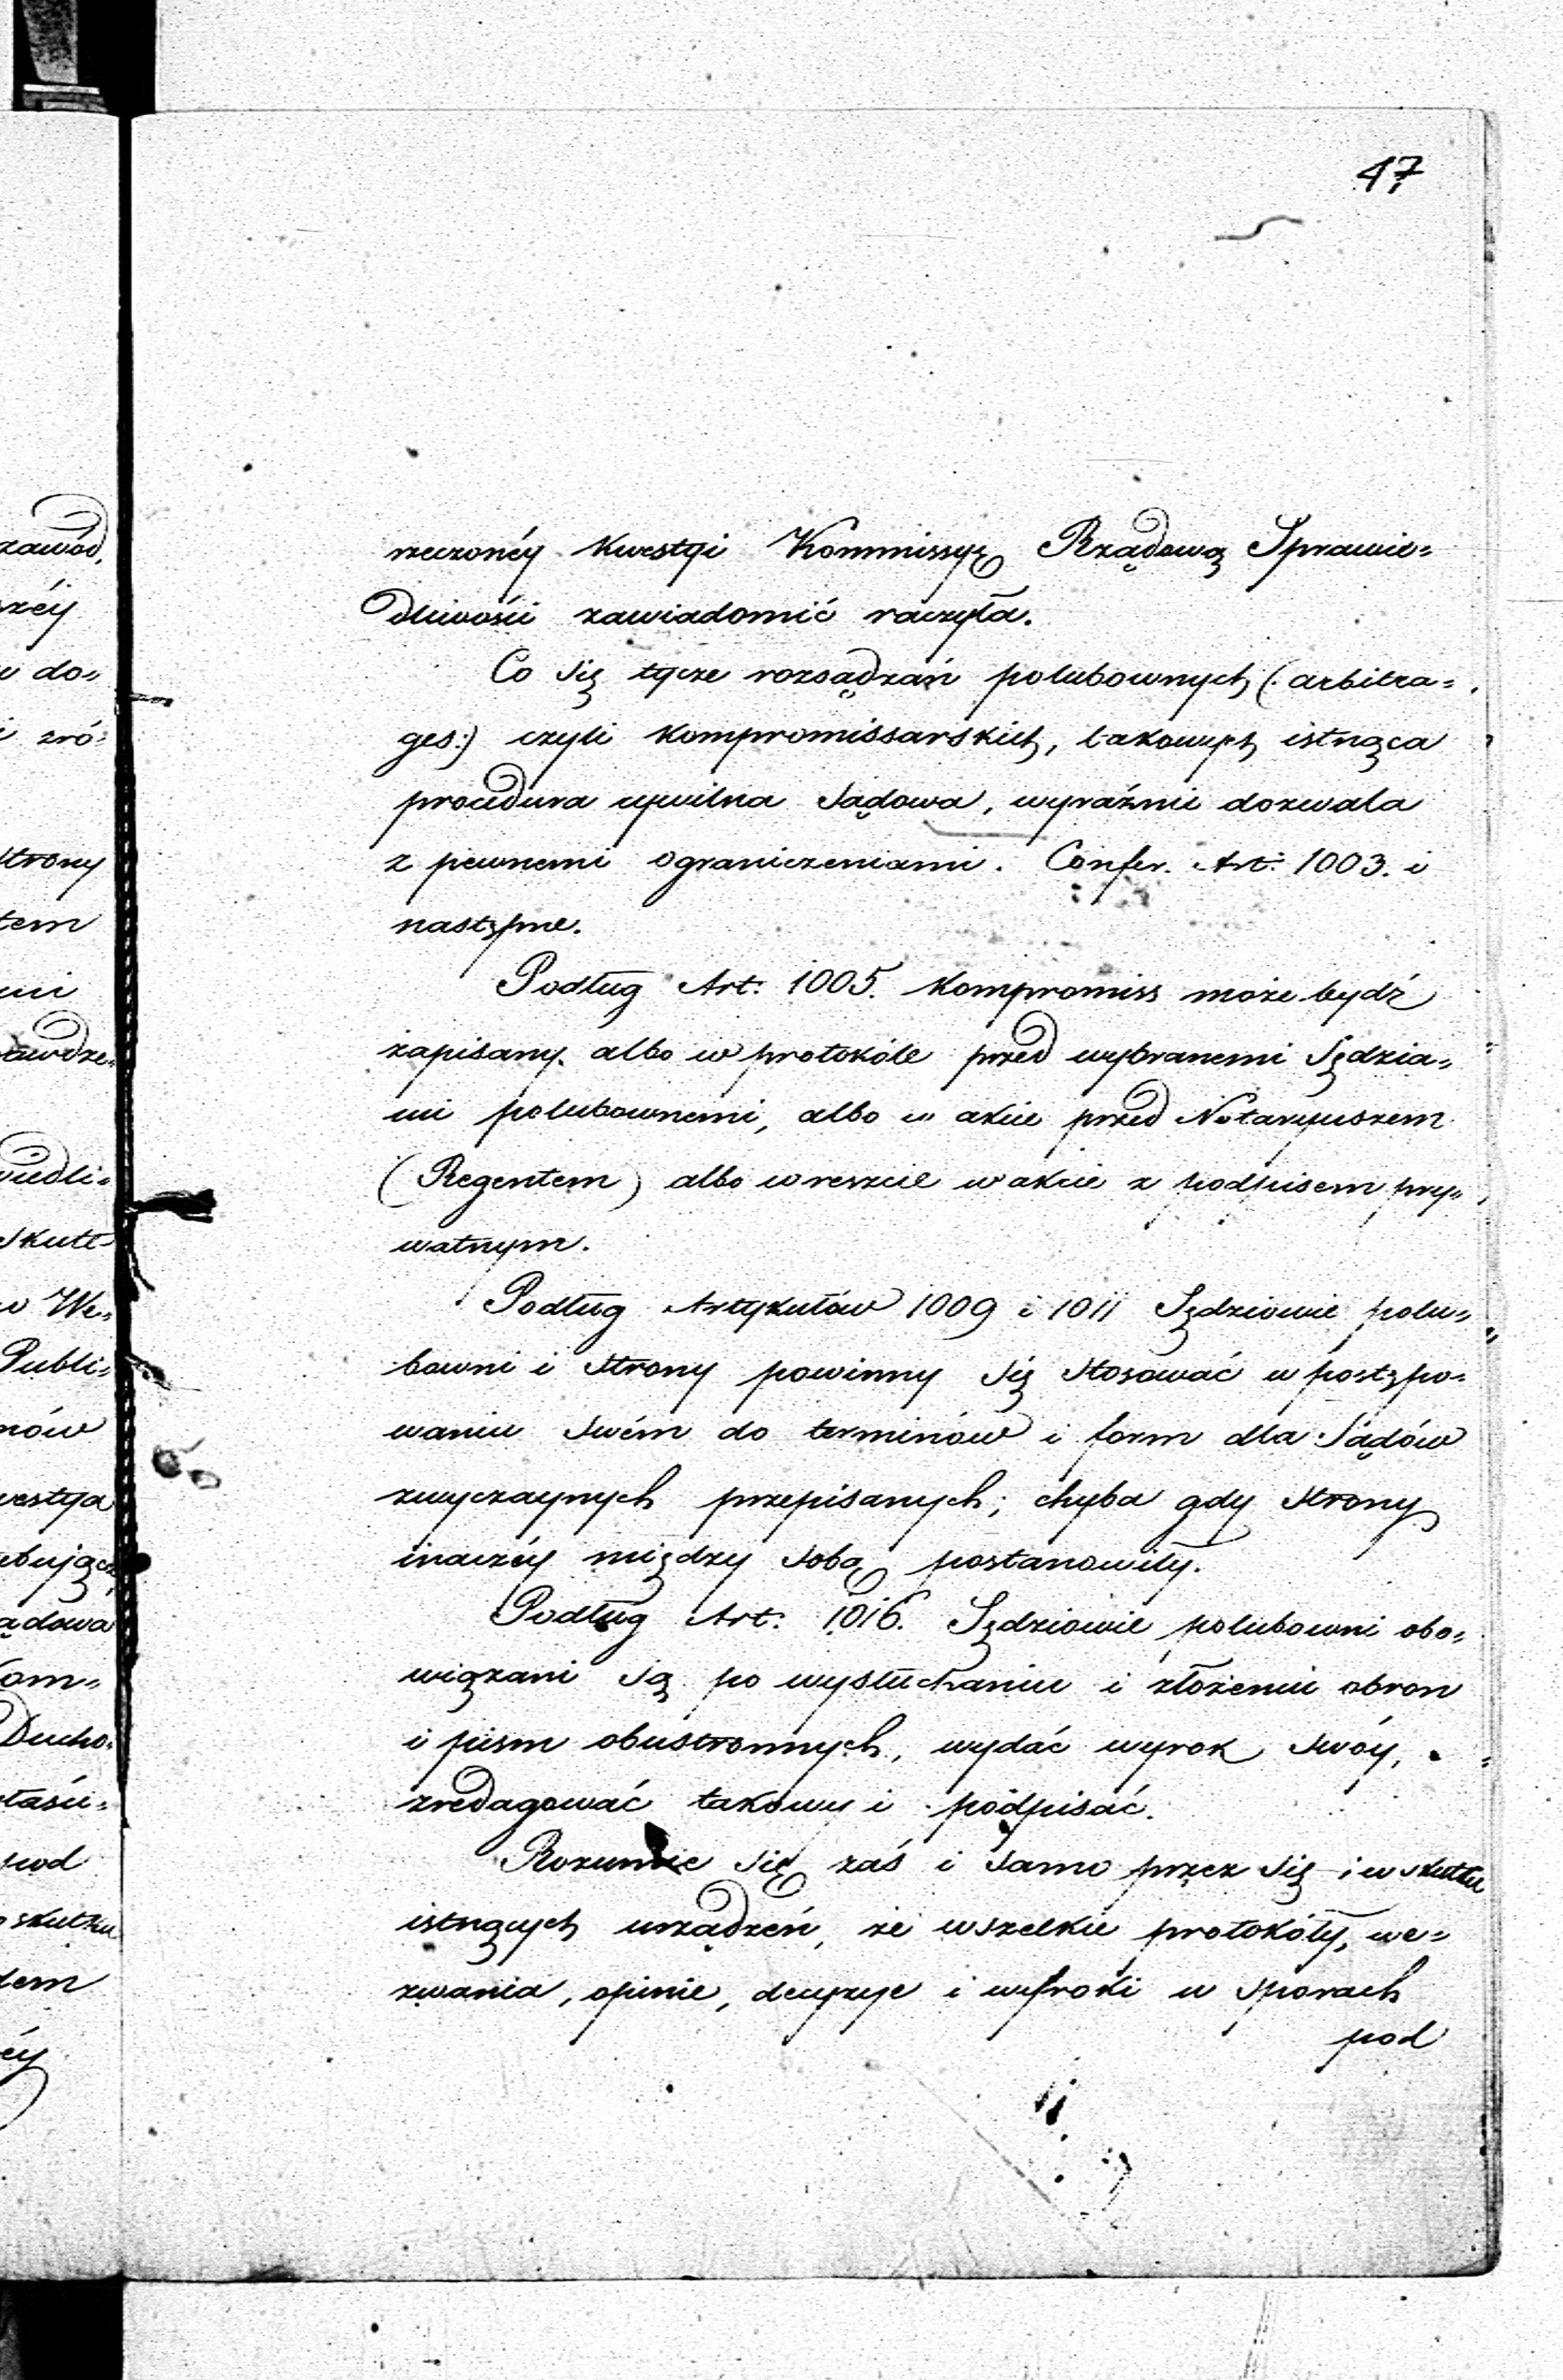 47
rzeczonéy kwestyi Kommissyę Rządową Sprawie=
dliwości zawiadomić raczyła.
Co się tycze rozsądzań polubownych (: arbitra=
ges:) czyli kompromissarskich, takowych istnąca
procedura cywilna sądowa, wyraźnie dozwala
z pewnemi ograniczeniami. Confer. Art: 1003. i
następne.
Podług Art: 1005. kompromiss może bydź
zapisany albo w protokóle przed wybranemi Sędzia=
mi polubownemi, albo w akcie przed Notaryuszem
(Regentem) albo wreszcie w akcie z podpisem pry=
watnym.
Podług Artykułów 1009 i 1011 Sędziowie polu=
bowni i strony powinny się stosować w postępo=
waniu swém do terminów i form dla Sądów
zwyczaynych przepisanych; chyba gdy strony
inaczéy między sobą postanowiły.
Podług Art: 1016. Sędziowie polubowni obo=
wiązani są po wysłuchaniu i złożeniu obron
i pism obustronnych, wydać wyrok swóy,
zredagować takowy i podpisać.
Rozumie się zaś i samo przez się i w skutku
istnących urządzeń, że wszelkie protokóły, we=
zwania, opinie, decyzye i wyroki w sporach
pod
zawód,
széy
do=
zró=
strony
tem
wiedli=
skute=
w We=
Publi=
westya
ądowa
kom=
Ducho=
pod
skutku
dem
éy